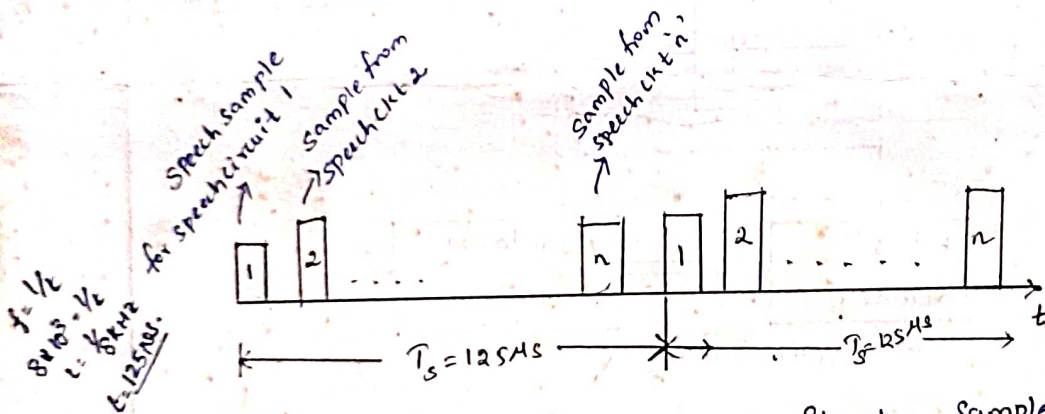 Speech sample
for speech circuit 1
Sample from
speech ckt 2
Sample from
speech ckt 'n'
f = 1/t
8x10³ = 1/t
t = 1/8kHz
t = 125μs.
1 2 . . . . n 1 2 . . . . . . n
t
Ts = 125μs Ts = 125μs
Sample